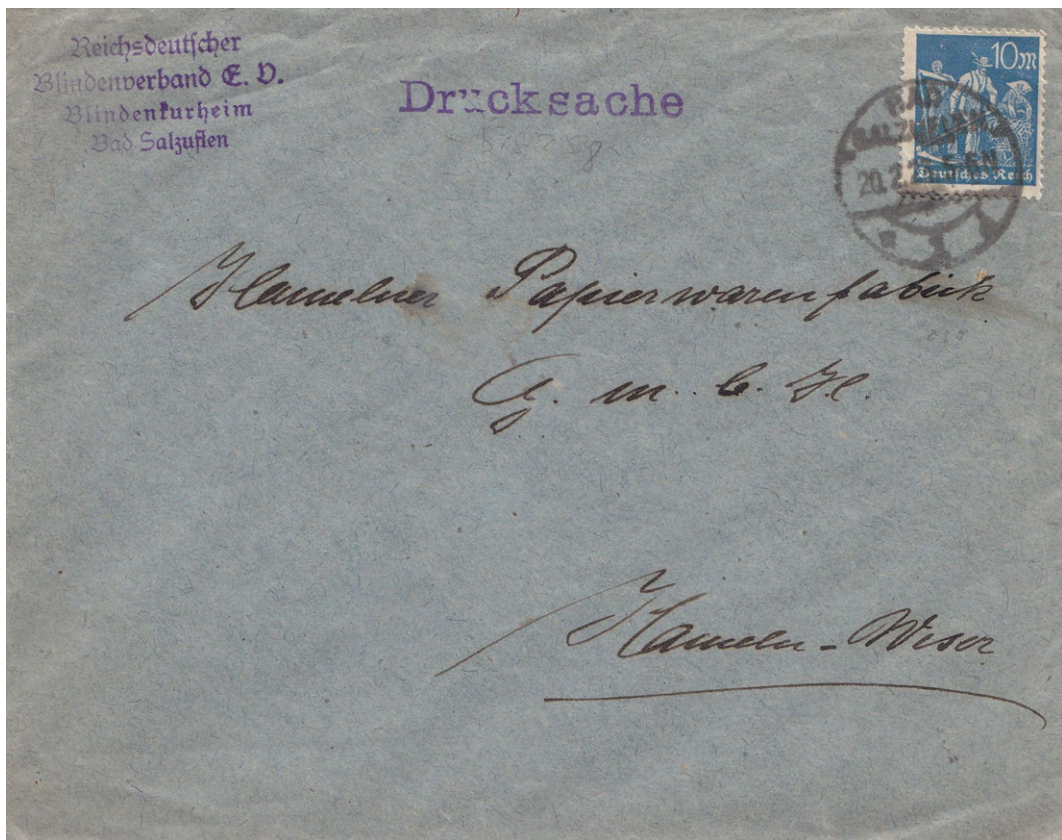 Reichsdeutscher
Blindenverband E. V.
Blindenkurheim
Bad Salzuflen
Drucksache
10 M
Deutsches Reich
BAD
SALZUFLEN
20.2.
Hamelner Papierwarenfabrik
G. m. b. H.
Hameln-Weser